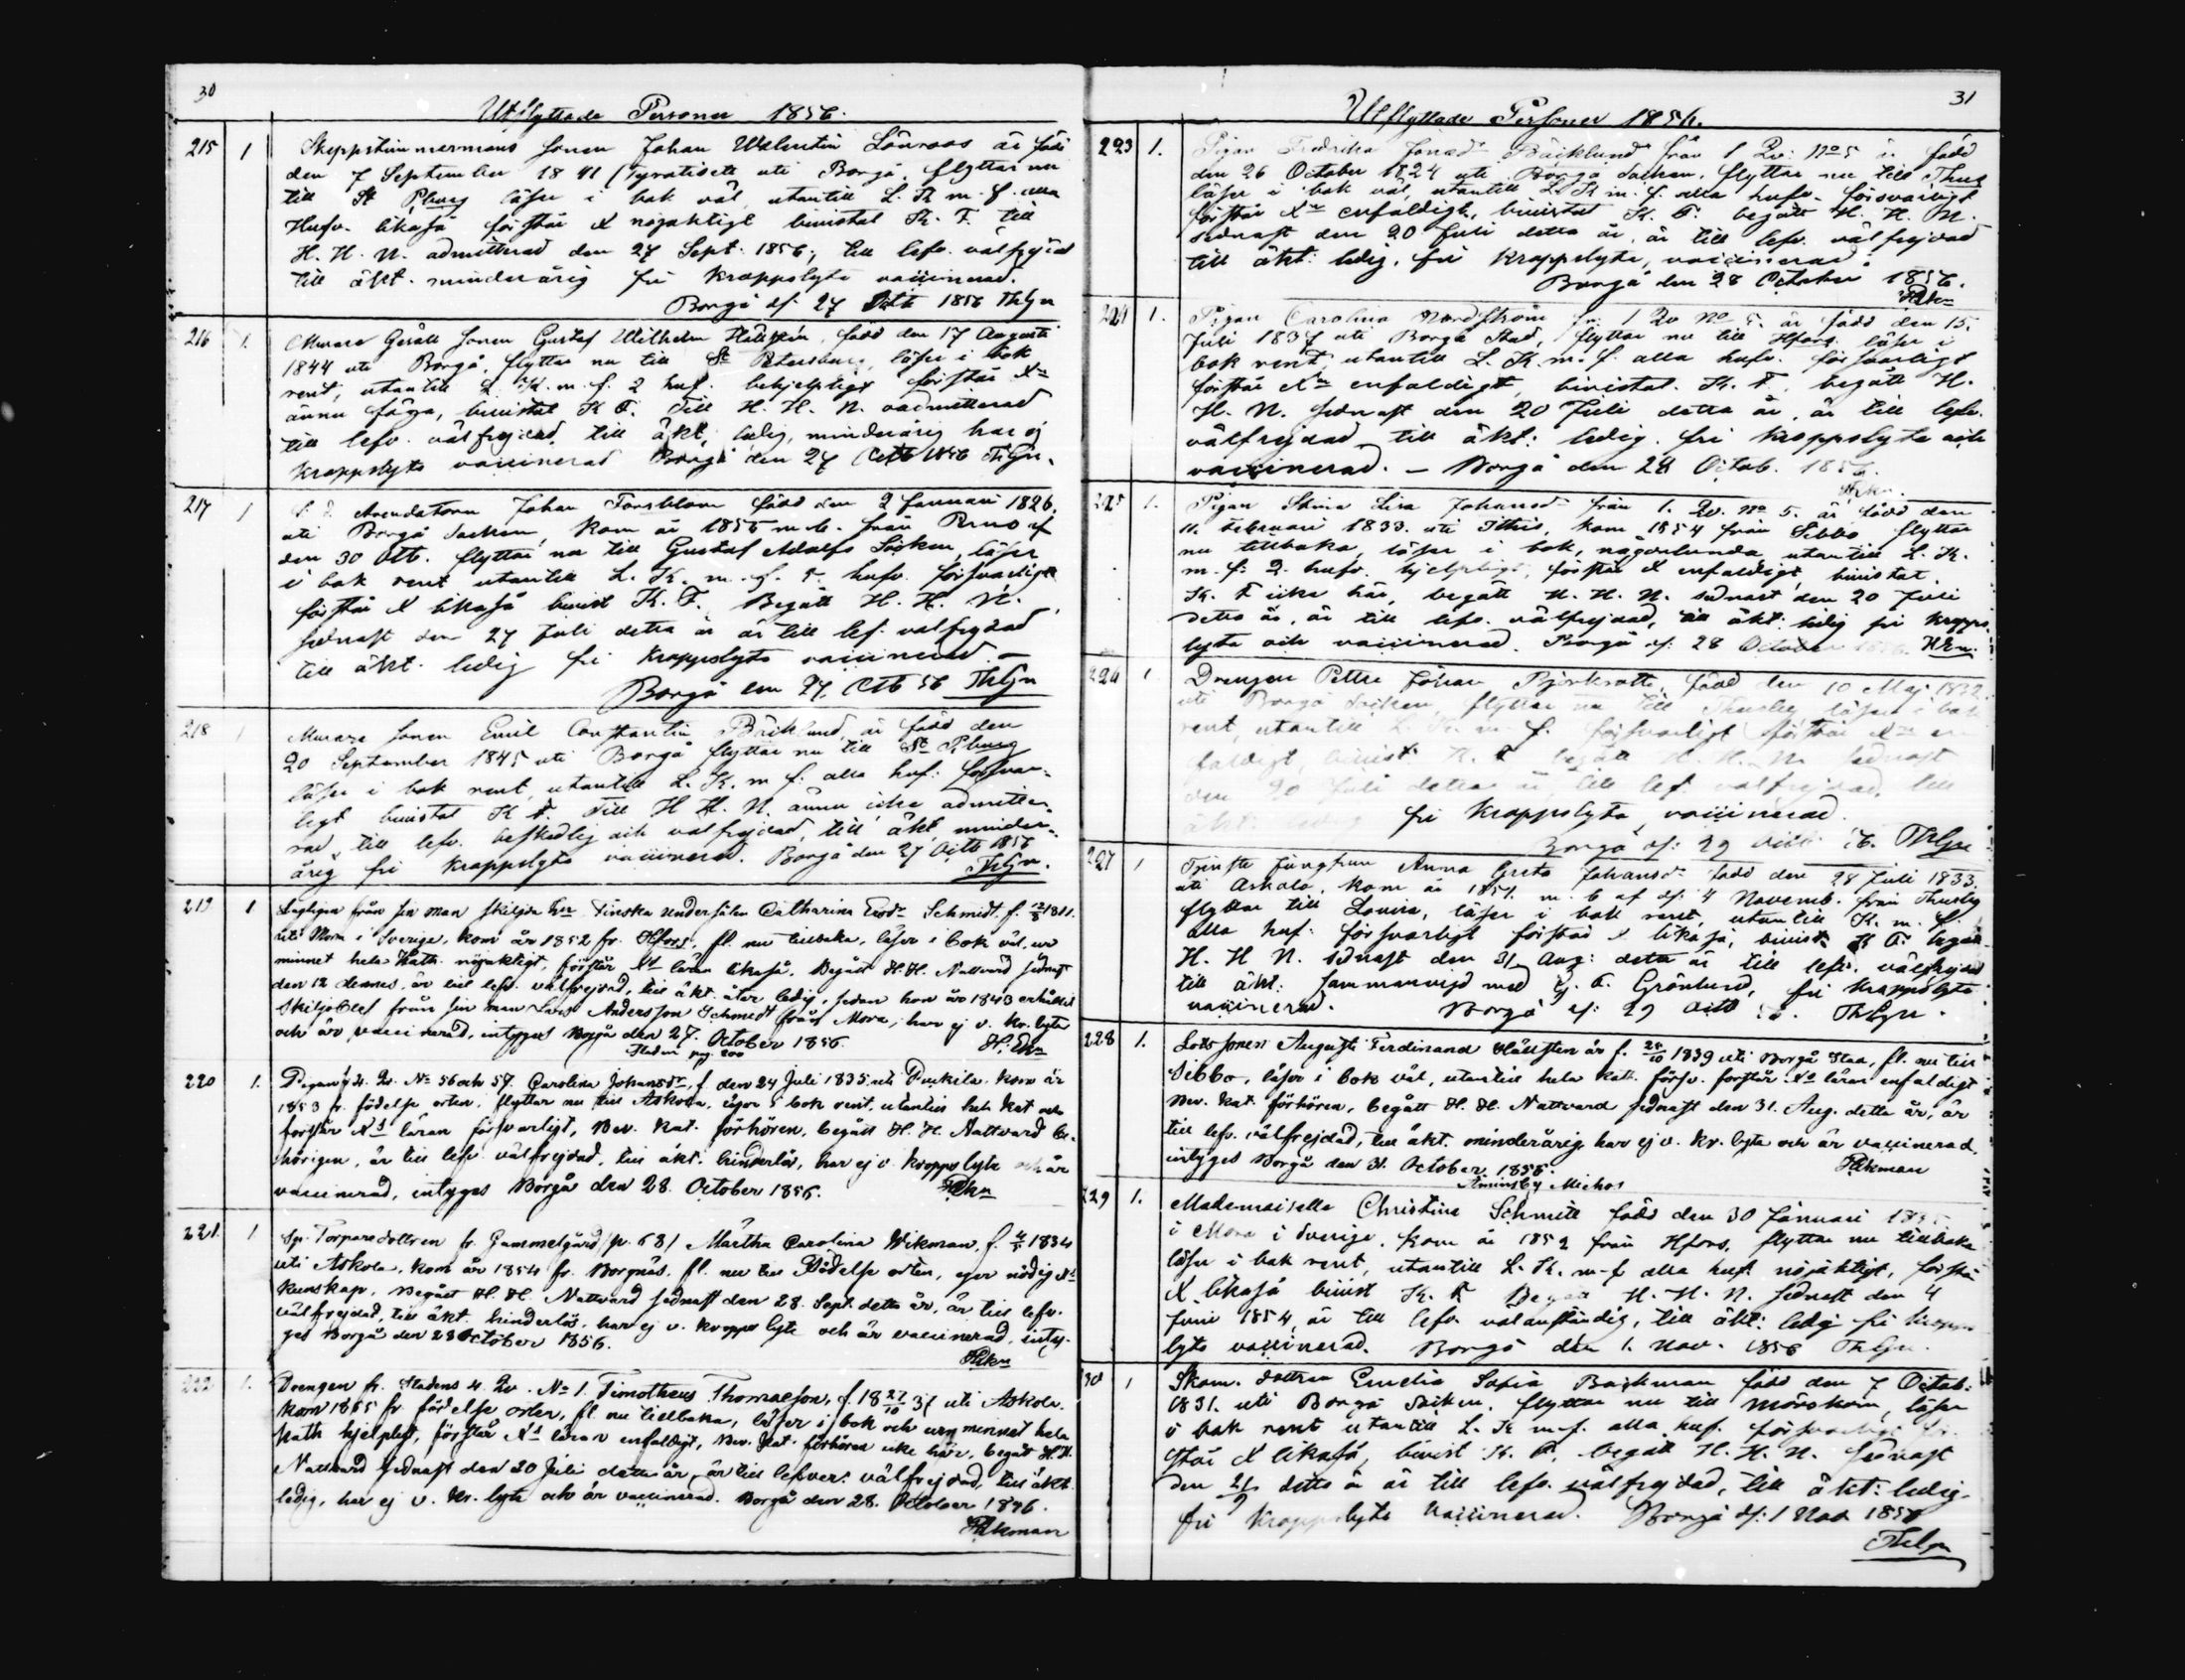 30
Utflyttade Personer 1856.
215 1 Skeppstimmermans sonen Johan Walentin Lönroos är född
den 7 September 1841 (fyratioett uti Borgå, flyttar nu
till St Pburg läser i bok väl, utantill L. K. m. f. alla
Hufv. likaså förstår X nöjaktigt bivistat K. F. till
H. H. N. admitterad den 27 Sept. 1856; till lefv. välfrejdad
till äkt. minderårig fri kroppslyte vaccinerad.
Borgå d. 27 Octb 1856 ThGn
216 1. Murare Gesäll sonen Gustaf Wilhelm född den 17 Augusti
1844 uti Borgå, flyttar nu till St Petersburg, läser i bok
rent, utantill L. K. m. f. 2 huf. behjelpligt förstår Xn
ännu föga, bivistat K F. Till H. H. N. oadmitterad
till lefv. välfrejdad, till äkt; ledig, minderårig har ej
kroppslyte vaccinerad Borgå den 27 Octb 1856 ThGn.
217 1 Arendatorn Johan Forsblom född den 2 Januari 1826.
uti Borgå Socken, kom år 1855 m. b. från Perno af
den 30 Octb. flyttar nu till Gustaf Adolfs Socken, läser
i bok rent utantill L. K. m. f. 5. hufv. försvarligt
förstår X likaså bivist K. F. Begått H. H. N.
sednast den 27 Juli detta år är till lef. välfrejdad
till äkt. ledig fri kroppslyte vaccinerad. —
Borgå den 27. Octb 56 ThGn
218 1 Murare sonen Emil Constantin Bäcklund, är född den
20 September 1845 uti Borgå flyttar nu till St Pburg
läser i bok rent, utantill L. K. m f: alla huf: försvar-
ligt bivistat K F. Till H H. N. ännu icke admitte-
rad, till lefv. beskedlig och välfrejdad, till äkt, minder-
årig fri kroppslyte vaccinerad. Borgå den 27 Octb 1856
ThGn.
219 1 Lagligen från sin man skiljda Finska undersåten Catharina Ersdr Schmidt, f. 1811.
uti Mora i Sverige, kom år 1852 fr. Hfors, fl. nu tillbaka, läser i bok väl, ur
minnet hela Kath. nöjaktigt, förstår Xd läran likaså. Begått H. H. Nattvard sednast
den 12 dennes, är till lefv. välfrejdad, till äkt. åter ledig, sedan hon år 1843 erhållit
Skiljobref från sin man Lars Andersson Schmidt från Mora, har ej v. kr. lyte
och är vaccinerad, intygas Borgå den 27. October 1856.
220 1. Pigan 4. Qv. No 56 och 57. Carolina Johansdr, f. den 24 Juli 1835 uti Puckila. kom år
1853 fr. födelse orten, flyttar nu till Askola, läser i bok rent, utantill hela Kat och
förstår Xd läran försvarligt, Bev. Kat. förhören, begått H. H. Nattvard be-
hörigen, är till lefv. välfrejdad, till äkt. hinderlös, har ej v. kropps lyte och är
vaccinerad, intygas Borgå den 28. October 1856.
221. 1 Torparedottren fr. Gammelgård (p. 68) Märtha Carolina Wikman, f. 1834
uti Askola, kom år 1854 fr. Borgnäs. fl. nu till Födelse orten, eger nödig Xd
kunskap, Begått H. H. Nattvard sednast den 28. Sept. detta år, är till lefv.
välfrejdad, till äkt. hinderlös, har ej v. kropps lyte och är vaccinerad, inty-
gas Borgå den 28 October 1856.
222 1. Drengen fr. Stadens 4. Qv. No 1. Timotheus Thomasson, f. 18 27/10 37 uti Askola.
kom 1855 fr födelse orten, fl. nu tillbaka, läser i bok och ur minnet hela
Kath hjelpligt, förstår Xd läran enfaldigt, Bev. Kat. förhören icke här, begått H. H.
Nattvard sednast den 20 Juli detta år, är till lefver: välfrejdad, till äkt.
ledig, har ej v. kr. lyte och är vaccinerad. Borgå den 28. October 1856.
31
Utflyttade Personer 1856.
223 1. Pigan Fredrika Jonasdr Bäcklund från 1 Qv: No 5 är född
den 26 October 1824 uti Borgå Socken, flyttar nu till Thusby
läser i bok väl, utantill L. K m. f. alla hufv. försvarligt
förstår Xn enfaldigt, bivistat K. F. begått H. H. N.
sednast den 20 Juli detta år, är till lefv. välfrejdad
till äkt: ledig, fri kroppslyte, vaccinerad.
Borgå den 28 October 1856.
224 1. Pigan Carolina Nordström fr. 1 Qv No 5. är född den 15.
Juli 1837 uti Borgå Stad, flyttar nu till Hfors. läser i
bok rent, utantill L. K. m. f. alla hufv. försvarligt
förstår Xn enfaldigt, bivistat. K. F. begått H.
H. N. sednast den 20 Juli detta år, är till lefv.
välfrejdad till äkt: ledig. fri kroppslyte och
vaccinerad. — Borgå den 28 Octob. 1856.
225 1. Pigan Stina Lisa Johansdr från 1. Qv. No 5. är född den
11. Februari 1833. uti kom 1854 från Sibbo flyttar
nu tillbaka, läser i bok, någorlunda utantill L. K.
m. f. 2. hufv. hjelpligt, förstår X enfaldigt, bivistat.
K. F icke här, begått H. H. N. sednast den 20 Juli
detta år, är till lefv. välfrejdad, till äkt. ledig fri kropps-
lyte och vaccinerad. Borgå d: 28 October 1856.
226 1 Drengen Petter Johan född den 10 Maj 1832
uti Borgå Socken, flyttar nu till Thusby läser i bok
rent, utantill L. K. m. f. försvarligt förstår Xn en-
faldigt, bivist K. F begått H. H. N. sednast
den 20 Juli detta år till lef. välfrejdad, till
äkt: ledig fri kroppslyte vaccinerad.
Borgå d: 29 Octb 56. ThGn
227 1 Tjenste jungfrun Anna Greta Johansdr född den 28 Juli 1833.
uti Askola, kom år m. b af d: 4 Novemb. från Thusby
flyttar till Lovisa, läser i bok rent, utantill K. m. f.
alla huf: försvarligt förstår X likaså, bivist K F. begått
H. H N. sednast den 31 Aug: detta år till lefv. välfrejdad
till äkt: sammanvigd med G. A. Grönlund, fri kroppslyte
vaccinerad. Borgå d: 29 Octb 56. ThGn.
228 1. Lots sonen August Ferdinand Hällsten är f. 25/10 1839 uti Borgå Stad, fl. nu till
Sibbo, läser i bok väl, utantill hela Kat. försv. förstår Xd läran enfaldigt
Bev. Kat. förhören, begått H. H. Nattvard sednast den 31. Aug. detta år, är
till lefv. välfrejdad, till äkt. minderårig, har ej v. kr. lyte och är vaccinerad,
intyges Borgå den 31. October 1856.
229 1. Mademoiselle Christina Schmitt född den 30 Januari
i Mora i Sverige. kom år 1852 från Hfors, flyttar nu tillbaka
läser i bok rent, utantill L. K. m. f alla huf. nöjaktigt, förstår
X likaså bivist K. F. Begått H. H. N. sednast den 4
Juni 1854, är till lefv. välanständig, till äkt: ledig fri kropps
lyte vaccinerad. Borgå den 1. Nov. 1856 ThGn.
30 1 Skom. dottren Emelia Sofia Backman född den 7 Octob:
1831. uti Borgå Socken. flyttar nu till Mörskom, läser
i bok rent utantill L. K m. f. alla huf. försvarligt för-
står X likaså, bivist K. F, begått H. H. N. sednast
den detta år är till lefv. välfrejdad, till äkt: ledig
fri kroppslyte vaccinerad. Borgå d: 1 Nov 1856
ThGn